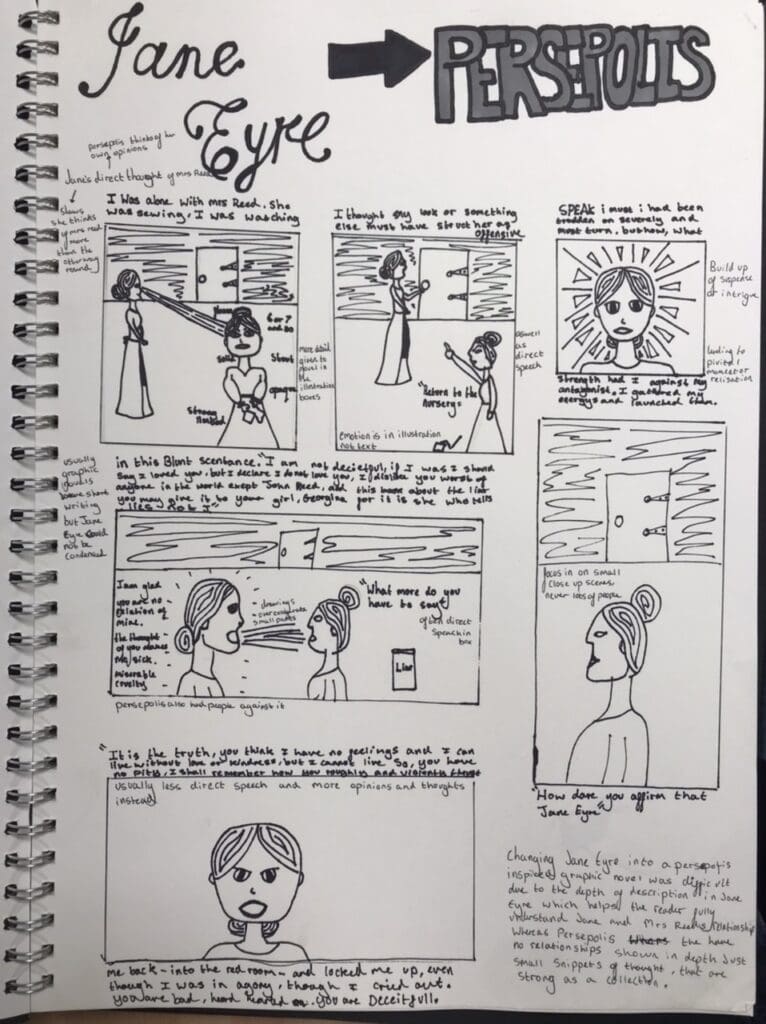 Jane
Eyre
PERSEPOLIS
persepolis thinks of her
own opinions
Jane's direct thought of mrs Reed
shows
she thinks
of mrs red
more
than the
other way
round
I was alone with mrs Reed. She
was sewing, I was watching
6 or 7
and 30
Stout
Strong
limbed
more detail
given to
novel in
the
illustration
boxes
I thought my look or something
else must have struct her as
offensive
"Return to the
nursery"
emotion is in illustration
not text
aswell
as
direct
speech
SPEAK i must i had been
trodden on severely and
must turn, but how, what
strength had I against my
antagonist. I gathered my
energys and launched them.
Build up
of suspense
or intrigue
leading to
pivitol
moment or
relisation
usually
graphic
novels
have short
writing
but Jane
Eyre could
not be
condensed
in this Blunt scentance. "I am not decietful, if I was I should
say I loved you, but I declare I do not love you, I dislike you worst of
anyone in the world exept John Reed, and this book about the liar
you may give it to your girl, Georgina for it is she who tells
"lies not I"
I am glad
you are no
relation of
mine.
the thought
of you makes
me sick.
miserable
cruelty
drawings
over exaggerate
small parts
"What more do you
have to say"
often direct
speech in
box
Liar
persepolis also had people against it
focus in on small
close up scenes,
never lots of people
"How dare you affirm that
Jane Eyre"
"It is the truth, you think I have no feelings and I can
live without love or kindness, but I cannot live so, you have
no pity, I shall remember how you roughly and violently thrust
usually less direct speech and more opinions and thoughts
instead
me back - into the red room - and locked me up, even
though I was in agony, though I cried out.
you are bad, hard hearted you are Deceitfull.
Changing Jane Eyre into a persepolis
inspired graphic novel was difficult
due to the depth of description in Jane
Eyre which helps the reader fully
understand Jane and Mrs Reeds relationship
Whereas Persepolis the have
no relationships shown in depth just
small snippets of thought, that are
strong as a collection.